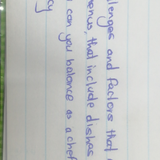 llenges and factors that
menus, that include dishes
can you balance as a chef
cy